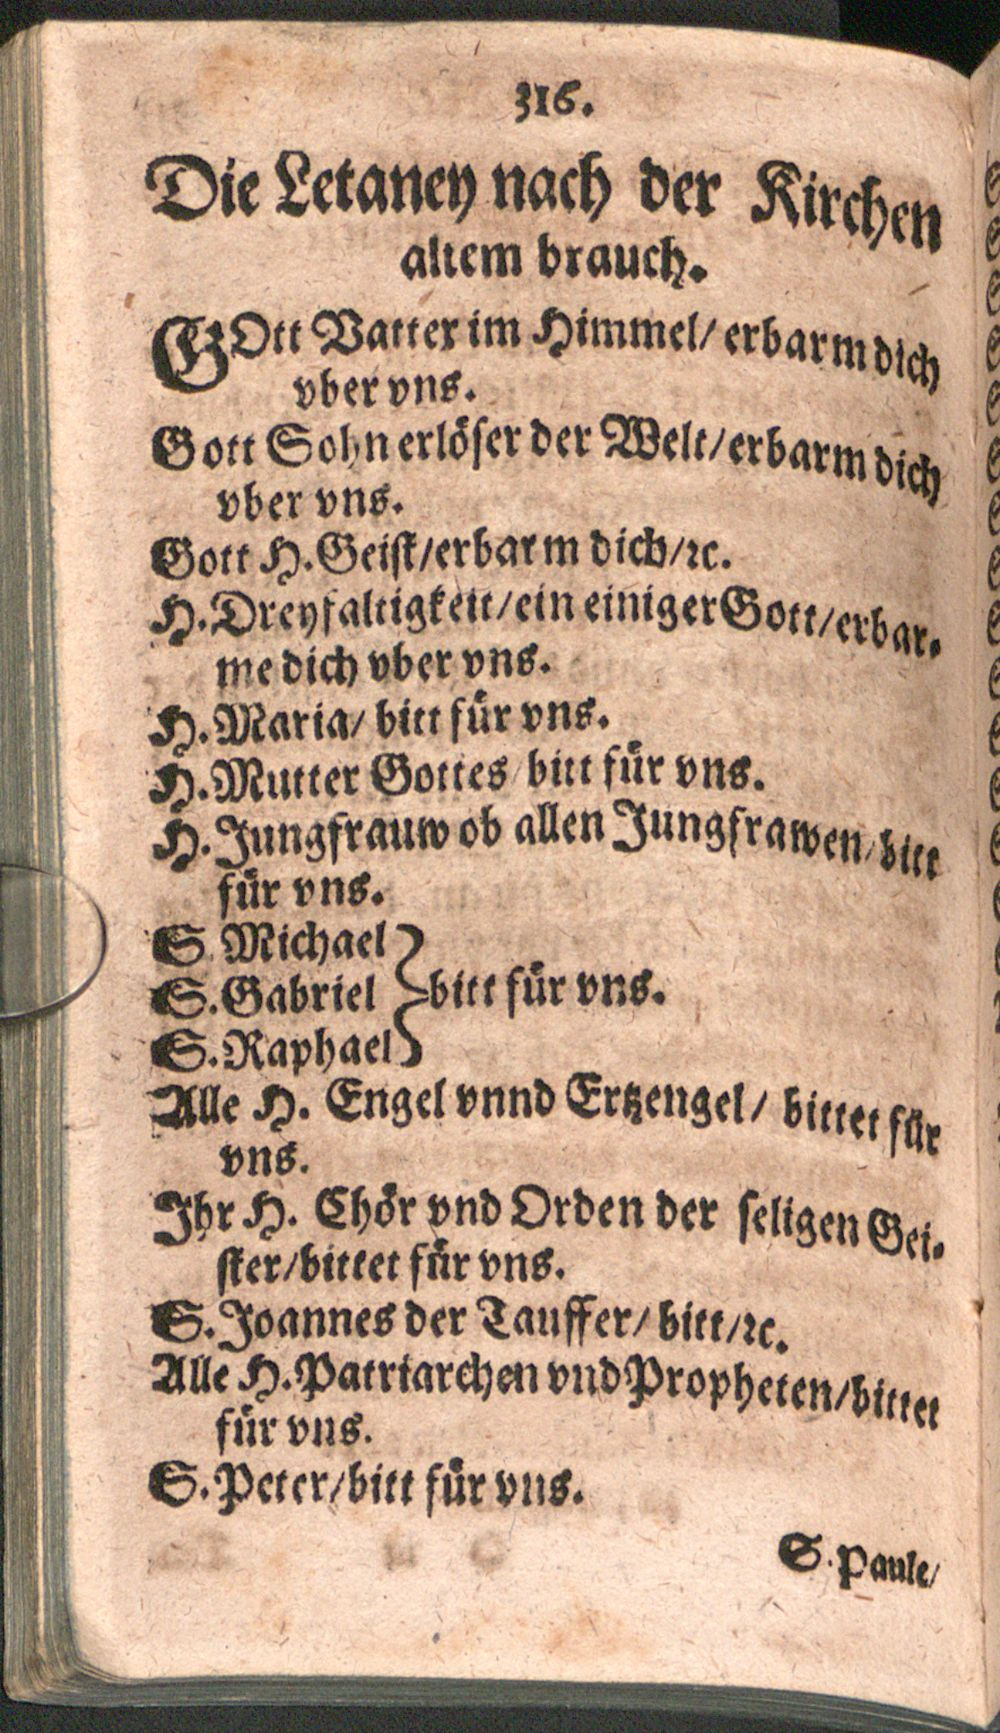 316.
Die Letaney nach der Kirchen
altem brauch.
GOtt Vatter im Himmel/ erbarm dich
vber vns.
Gott Sohn erlöser der Welt/erbarm dich
vber vns.
Gott H. Geist/erbarm dich/ꝛc.
H. Dreyfaltigkeit/ein einiger Gott/erbar-
me dich vber vns.
H. Maria/ bitt für vns.
H. Mutter Gottes/bitt für vns.
H. Jungfrauw ob allen Jungfrawen/bitt
für vns.
S. Michael
S. Gabriel } bitt für vns.
S. Raphael
Alle H. Engel vnnd Ertzengel/ bittet für
vns.
Ihr H. Chör vnd Orden der seligen Gei-
ster/bittet für vns.
S. Joannes der Tauffer/ bitt/ꝛc.
Alle H. Patriarchen vnd Propheten/bittet
für vns.
S. Peter/bitt für vns.
S. Paule/